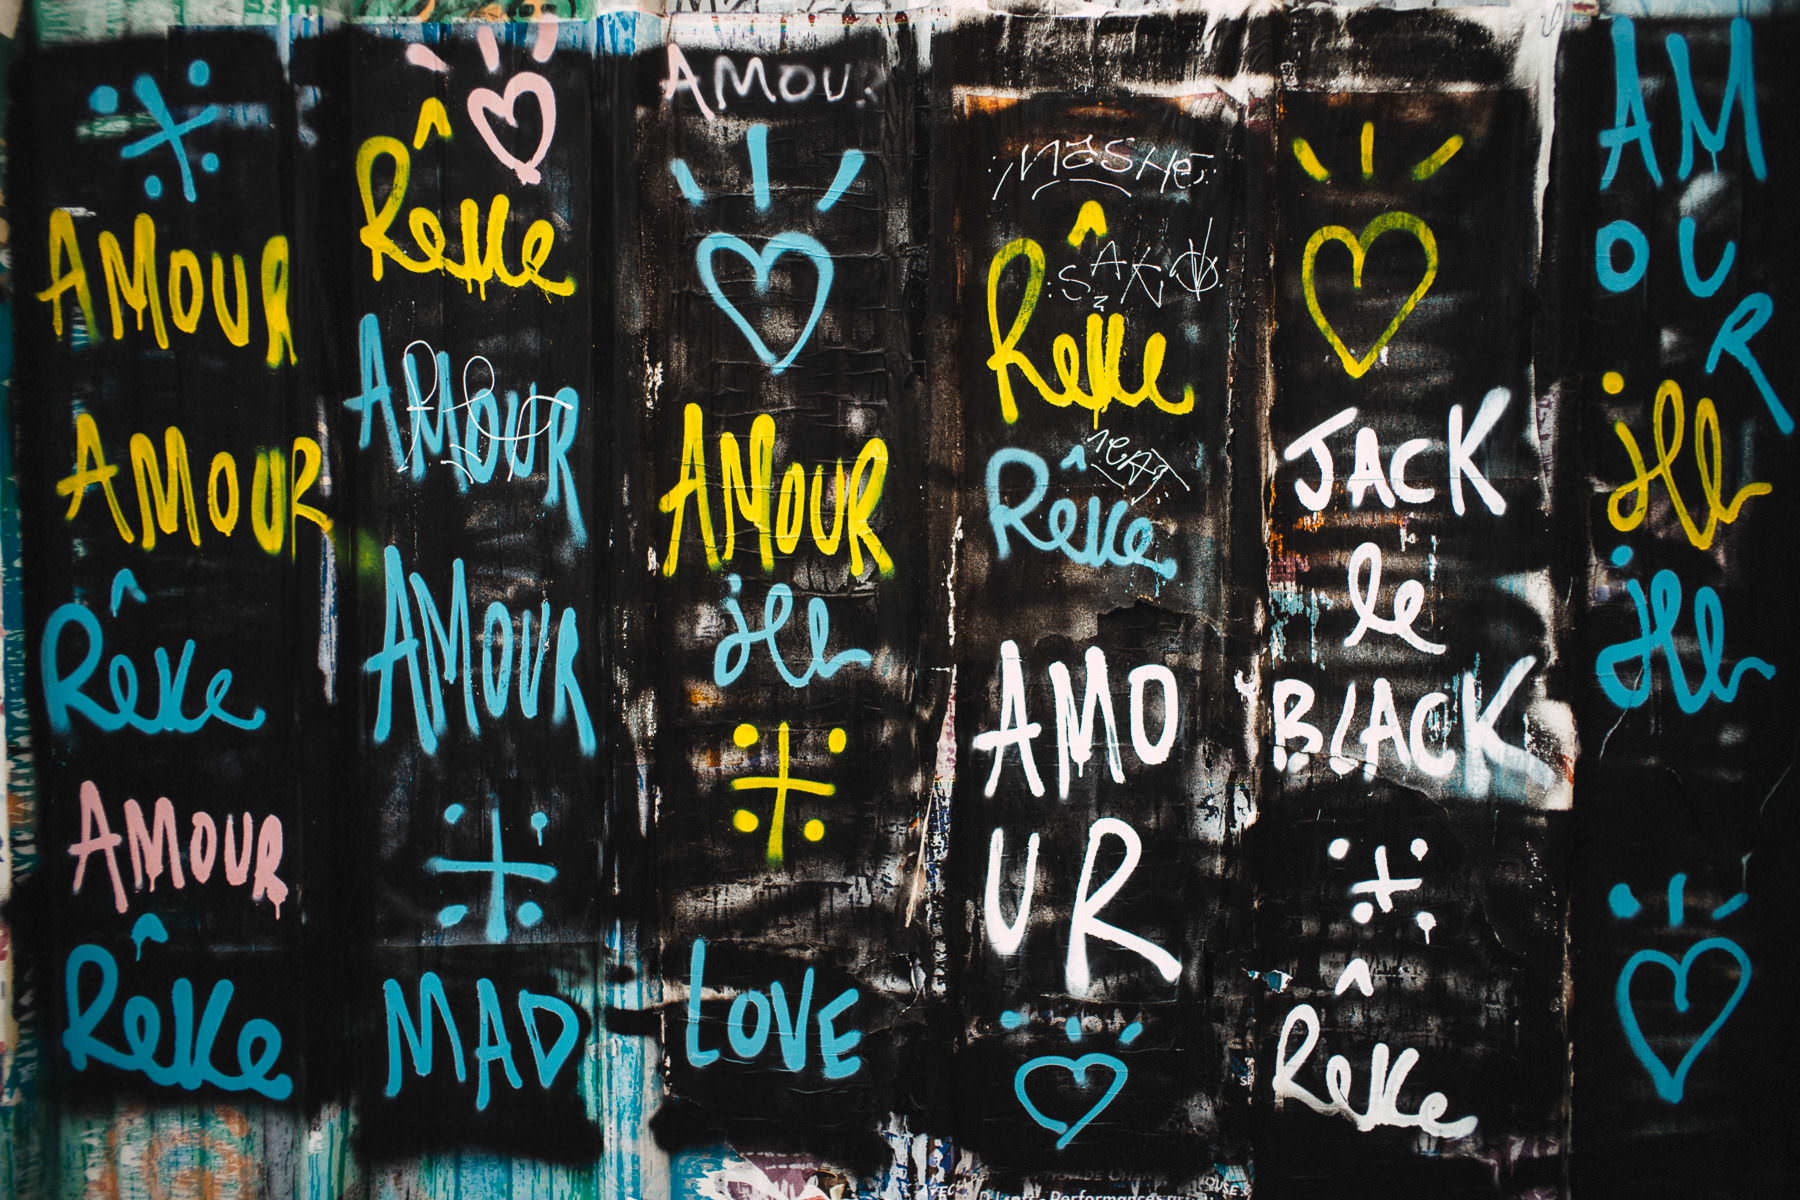 AMOUR
AMOUR
Rêve
AMOUR
Rêve
Rêve
AMOUR
AMOUR
MAD
AMOUR
AMOUR
LOVE
MOSHE
Rêve
Rêve
AMO
UR
JACK
le
BLACK
Rêve
AM
OU
R